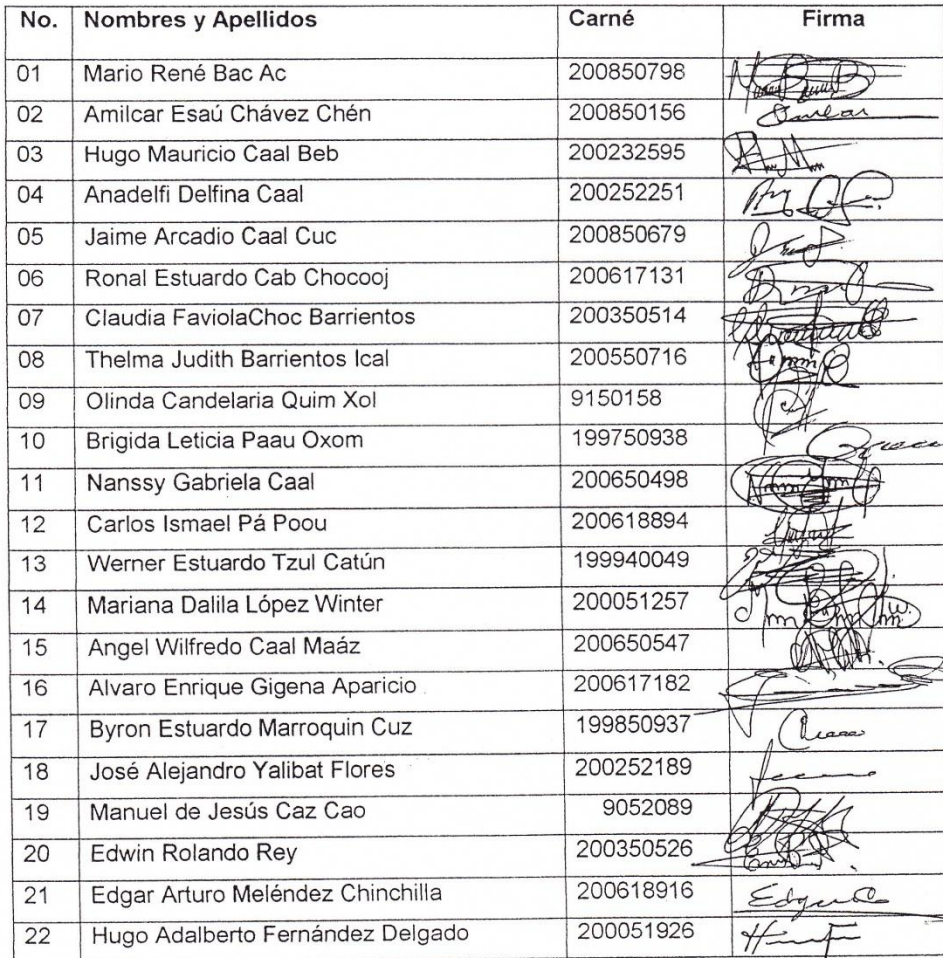 No. Nombres y Apellidos Carné Firma
01 Mario René Bac Ac 200850798
02 Amilcar Esaú Chávez Chén 200850156
03 Hugo Mauricio Caal Beb 200232595
04 Anadelfi Delfina Caal 200252251
05 Jaime Arcadio Caal Cuc 200850679
06 Ronal Estuardo Cab Chocooj 200617131
07 Claudia FaviolaChoc Barrientos 200350514
08 Thelma Judith Barrientos Ical 200550716
09 Olinda Candelaria Quim Xol 9150158
10 Brigida Leticia Paau Oxom 199750938
11 Nanssy Gabriela Caal 200650498
12 Carlos Ismael Pá Poou 200618894
13 Werner Estuardo Tzul Catún 199940049
14 Mariana Dalila López Winter 200051257
15 Angel Wilfredo Caal Maáz 200650547
16 Alvaro Enrique Gigena Aparicio 200617182
17 Byron Estuardo Marroquin Cuz 199850937
18 José Alejandro Yalibat Flores 200252189
19 Manuel de Jesús Caz Cao 9052089
20 Edwin Rolando Rey 200350526
21 Edgar Arturo Meléndez Chinchilla 200618916
22 Hugo Adalberto Fernández Delgado 200051926